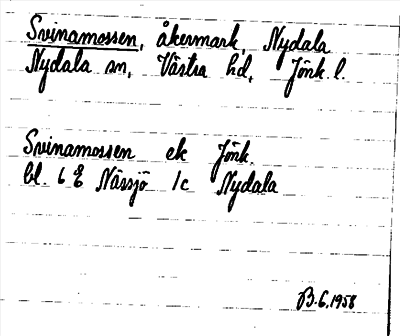 Svinamossen, åkermark, Nydala
Nydala sn, Västra hd, Jönk. l.
Svinamossen ek Jönk.
bl. 6 E Nässjö 1c Nydala
B.G. 1958